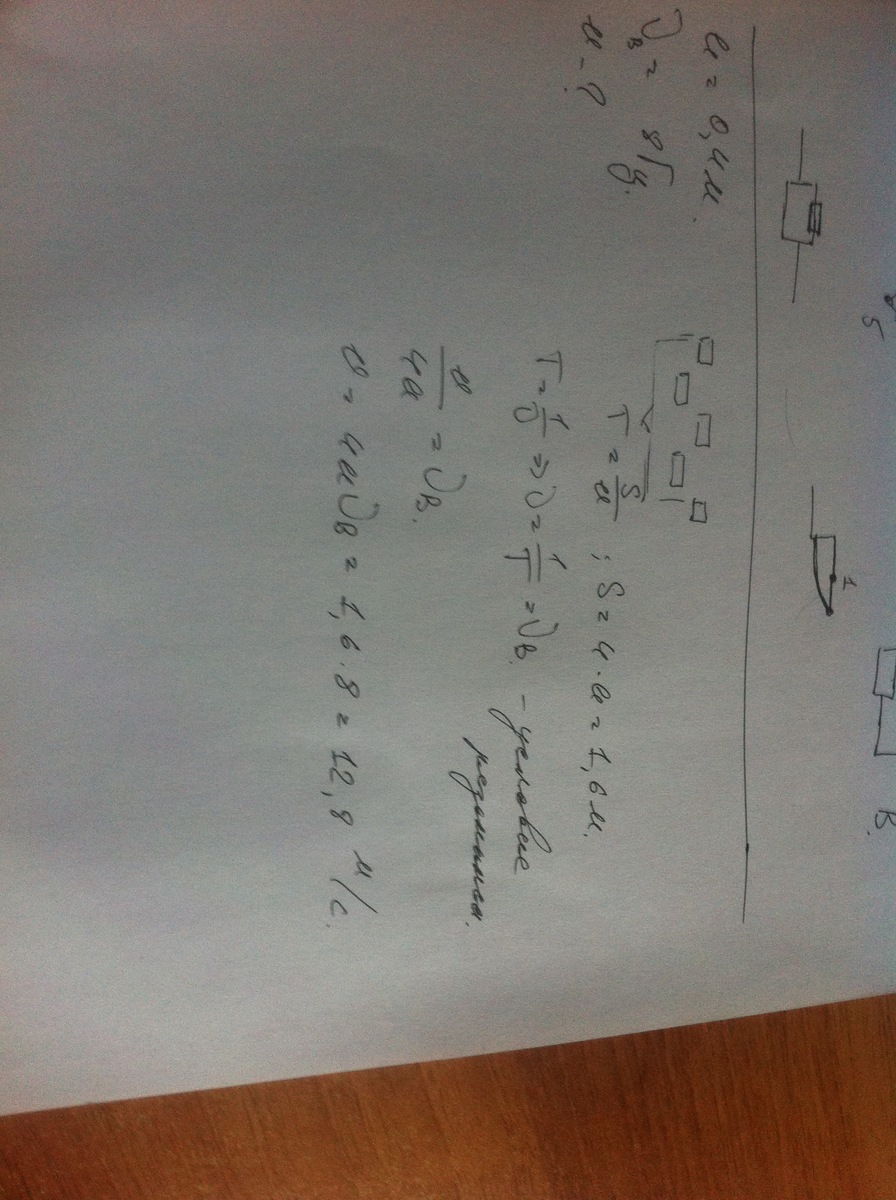 5
1
B.
a = 0,4 м.
ν_B = 8 Гц.
u - ?
T = S/u ; S = 4·a = 1,6 м.
T = 1/ν => ν = 1/T = ν_B. - условие
резонанса.
u/4a = ν_B.
u = 4aν_B = 1,6·8 = 12,8 м/с.